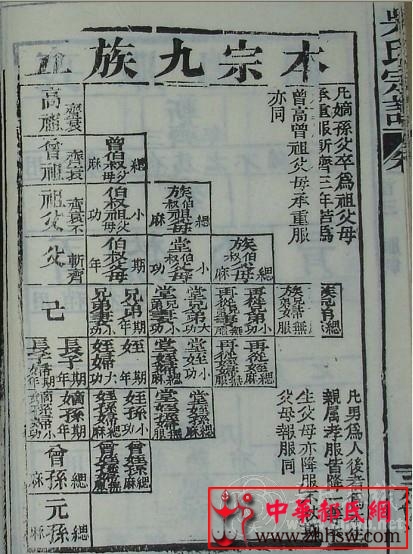 吳氏宗譜 卷
本宗九族五
凡嫡孫父卒為祖父母
承重服斬齊三年若為
曾高曾祖父母承重服
亦同
高祖 齊衰
曾祖 齊衰
曾伯叔祖父母 緦麻
祖父 齊衰不
伯叔祖父母 小功
族伯叔祖父母 緦麻
父 斬齊
伯叔父母 期年
堂伯叔父母 小功
族伯叔父母 緦麻
己
兄弟 期年
兄弟妻 小功
堂兄弟 大功
堂兄弟妻 緦麻
再從兄弟 小功
再從兄弟妻 無服
族兄弟 緦麻
族兄弟妻 無服
長子 期年
長子婦 期年
姪 期年
姪婦 大功
堂姪 小功
堂姪婦 緦麻
再從姪 緦麻
再從姪婦 無服
嫡孫 期年
嫡孫婦 小功
姪孫 小功
姪孫婦 緦麻
堂姪孫 緦麻
堂姪孫婦 無服
曾孫 緦麻
曾姪孫 緦麻
元孫 緦麻
凡男為人後者為
親屬孝服皆降一等
生父母亦降服不
父母報服同
中華賴氏網
www.zhlshw.com